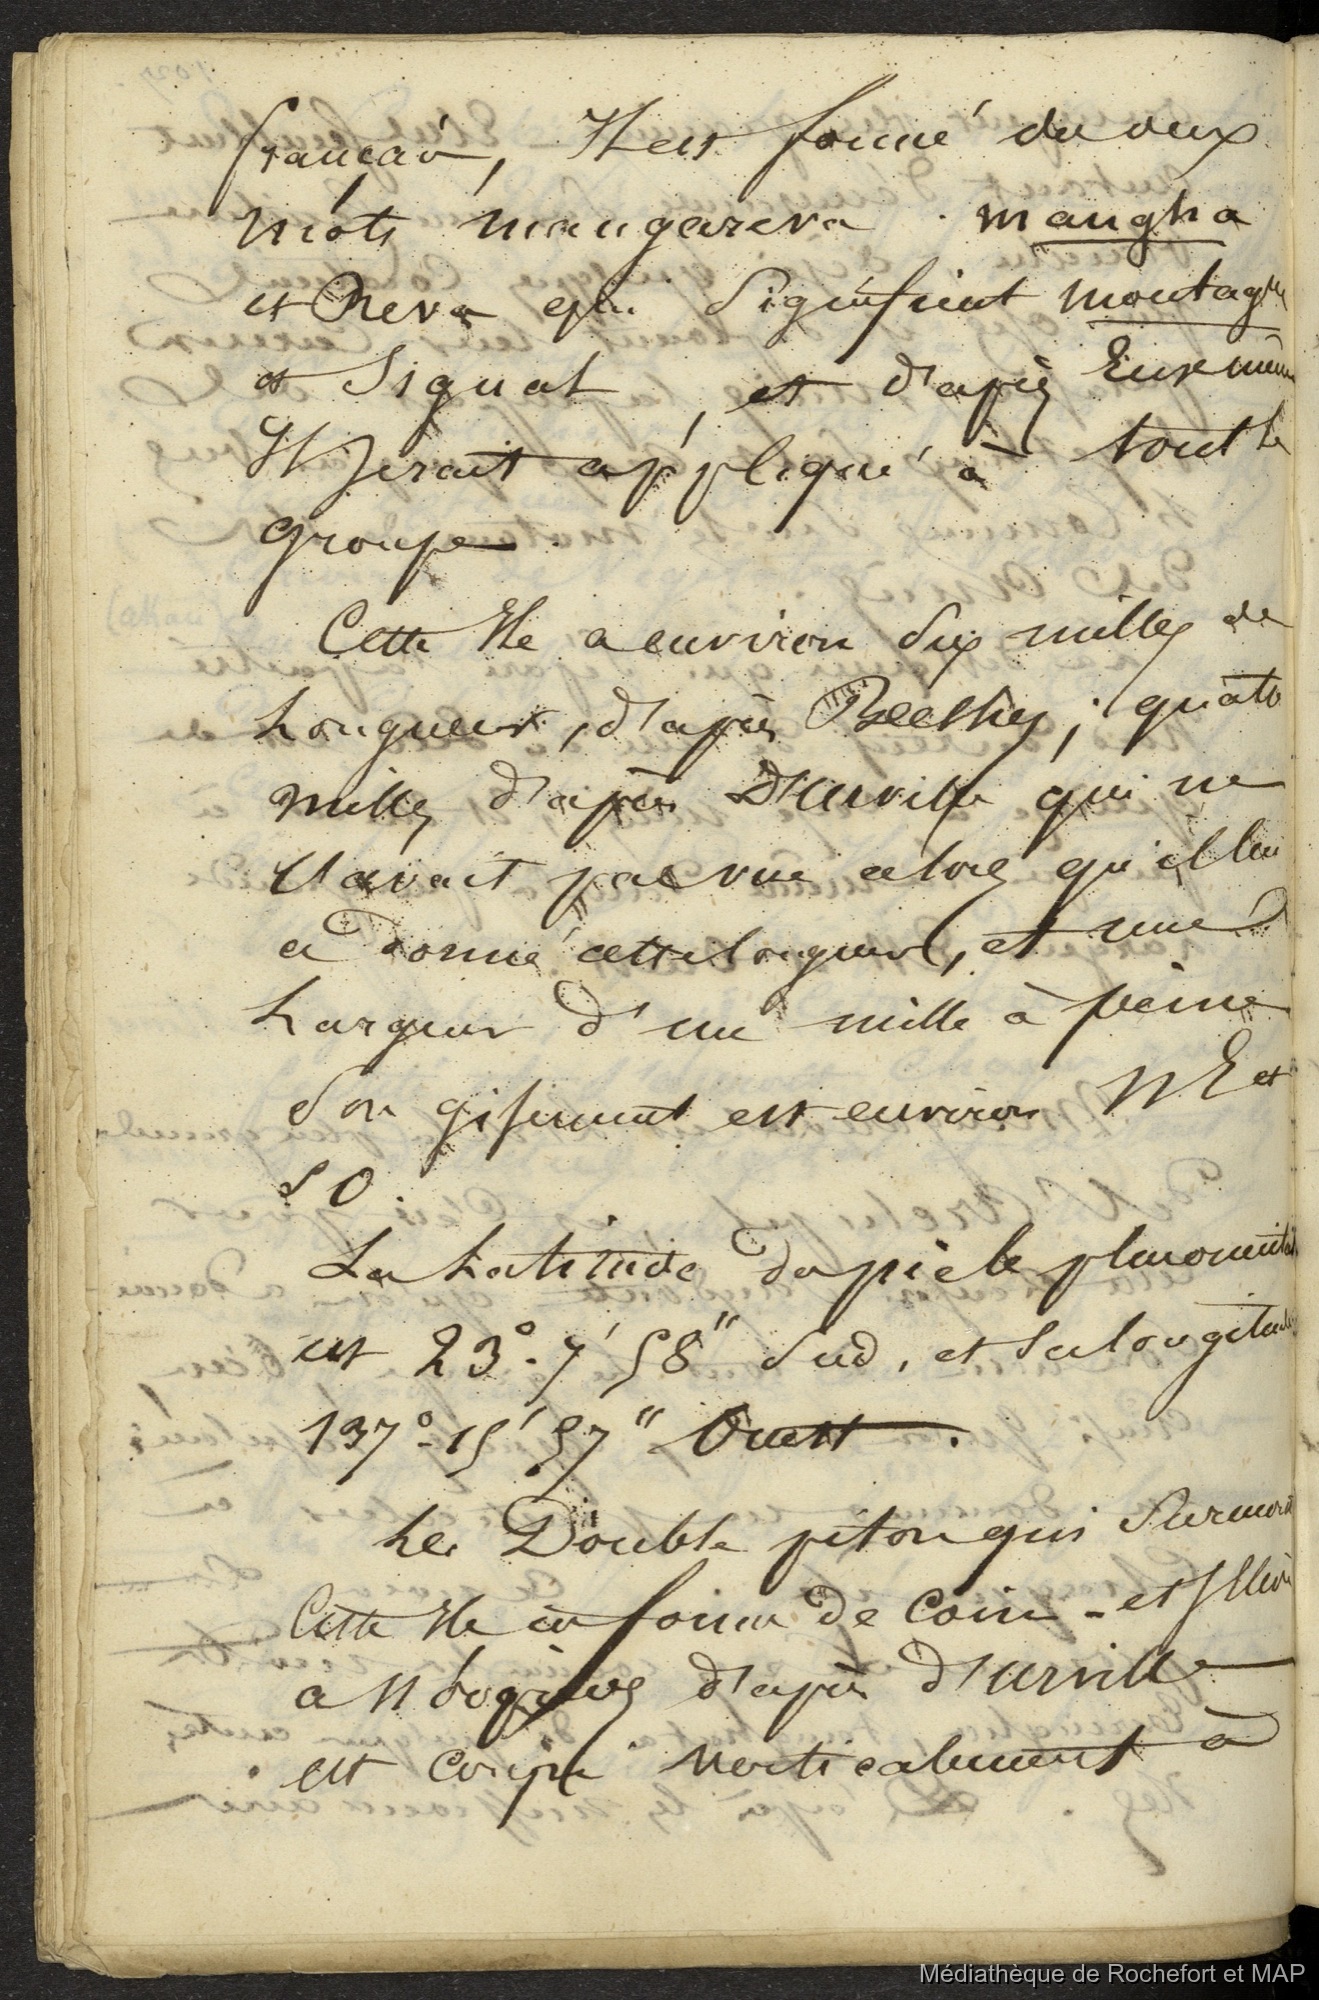 français, Il est formé de deux
mots mangareva mangha
et Reva qui signifient montagne
et Signal, et d'après Eux même
Il serait appliqué à tout le
groupe.
Cette Ile a environ six milles de
Longueur, d'après Beechey ; quatre
milles d'après D'Urville qui ne
l'avait pas vue alors qu'il lui
a donné cette longueur, et une
Largeur d'un mille à peine
Son gisement est environ NE et
SO.
La Latitude d'après le plus oriental
est 23°. 7' 58" Sud, et sa longitude
137°. 15' 57" Ouest.
Le Double piton qui surmonte
Cette Ile en forme de Coin - et s'élève
a d'après d'Urville
est coupé verticalement à
Médiathèque de Rochefort et MAP